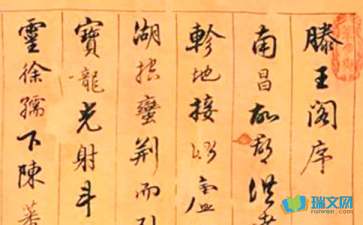 滕王閣序
南昌故郡洪
軫地接衡廬
湖控蠻荊而引
寶龍光射斗
靈徐孺下陳蕃
瑞文网
ruiwen.com